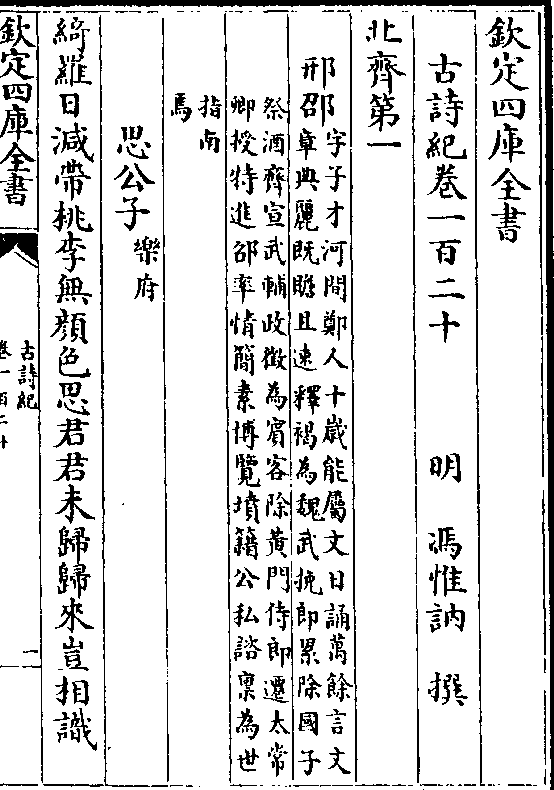 欽定四庫全書
古詩紀卷一百二十 明 馮惟訥 撰
北齊第一
邢邵 字子才河間鄭人十歲能屬文日誦萬餘言文
章典麗既贍且速釋褐為魏武挽郎累除國子
祭酒齊宣武輔政徵為賓客除黃門侍郎遷太常
卿授特進邵率情簡素博覽墳籍公私諮稟為世
指南
焉
思公子 樂府
綺羅日減帶桃李無顏色思君君未歸歸來豈相識
欽定四庫全書
古詩紀
卷一百二十
一